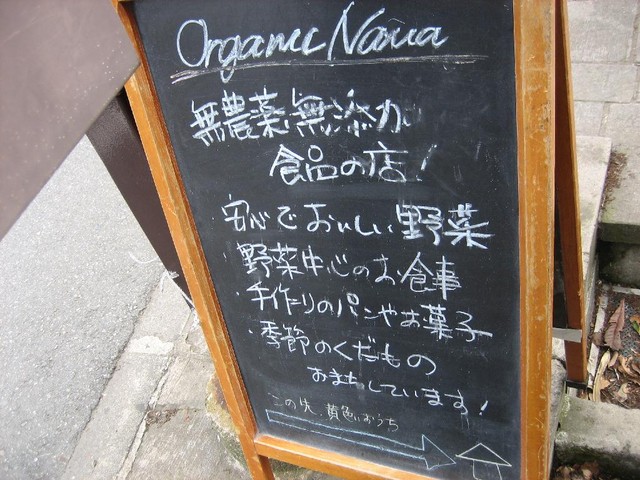 Organic Nawa
無農薬・無添加
食品の店!
安心でおいしい野菜
野菜中心のお食事
・手作りのパンやお菓子
・季節のくだもの
おまちしています!
この先、黄色いおうち